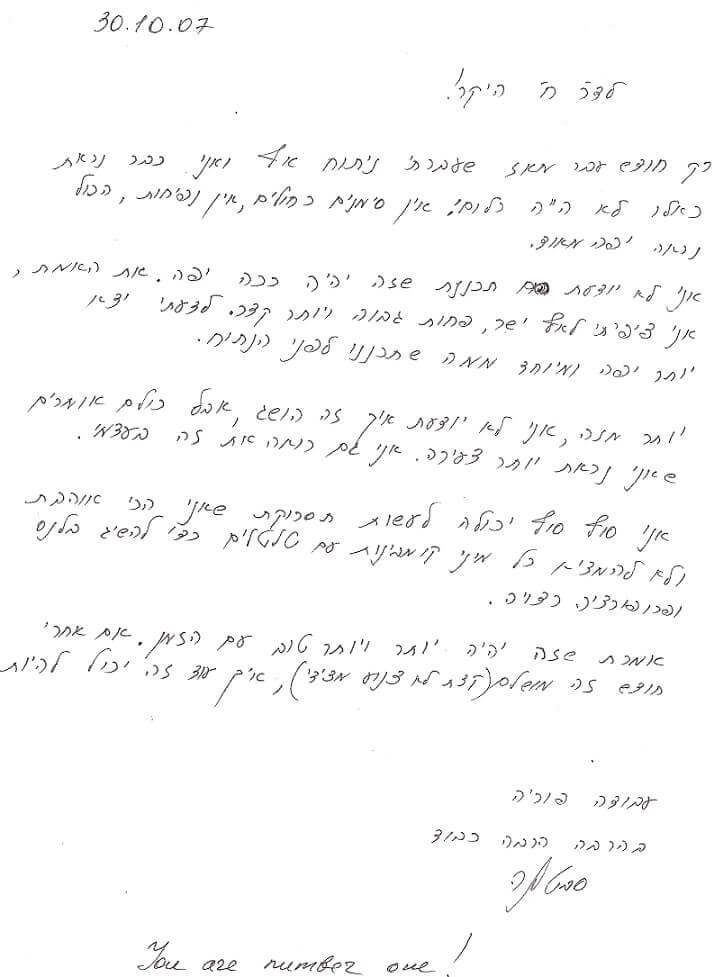 30.10.07
לד״ר ח׳ היקר!
רק חודש עבר מאז שעברתי ניתוח אף ואני כבר נראת
כאלו לא היה כלום! אין סימנים כחולים, אין נפיחות, הכול
נראה יפה מאוד.
אני לא יודעת תכננת שזה יהיה ככה יפה. את האמת,
אני ציפיתי לאף ישר, פחות גבוה ויותר קצר. לדעתי יצא
יותר יפה ומיוחד ממה שתכננו לפני הנתיח.
יותר מזה, אני לא יודעת איך זה הושג, אבל כולם אומרים
שאני נראת יותר צעירה. אני גם רואה את זה בעצמי.
אני סוף סוף יכולה לעשות תסרוקת שאני הכי אוהבת
ולא להמציא כל מיני קומבינות עם טלטלים כדי להשיג בלנס
ופרופורציה רצויה.
אמרת שזה יהיה יותר ויותר טוב עם הזמן. אם אחרי
חודש זה מושלם (קצת לא צנוע מצידי), איך עוד זה יכול להיות
עבודה פוריה
בהרבה הרבה כבוד
סבטלנה
You are number one!